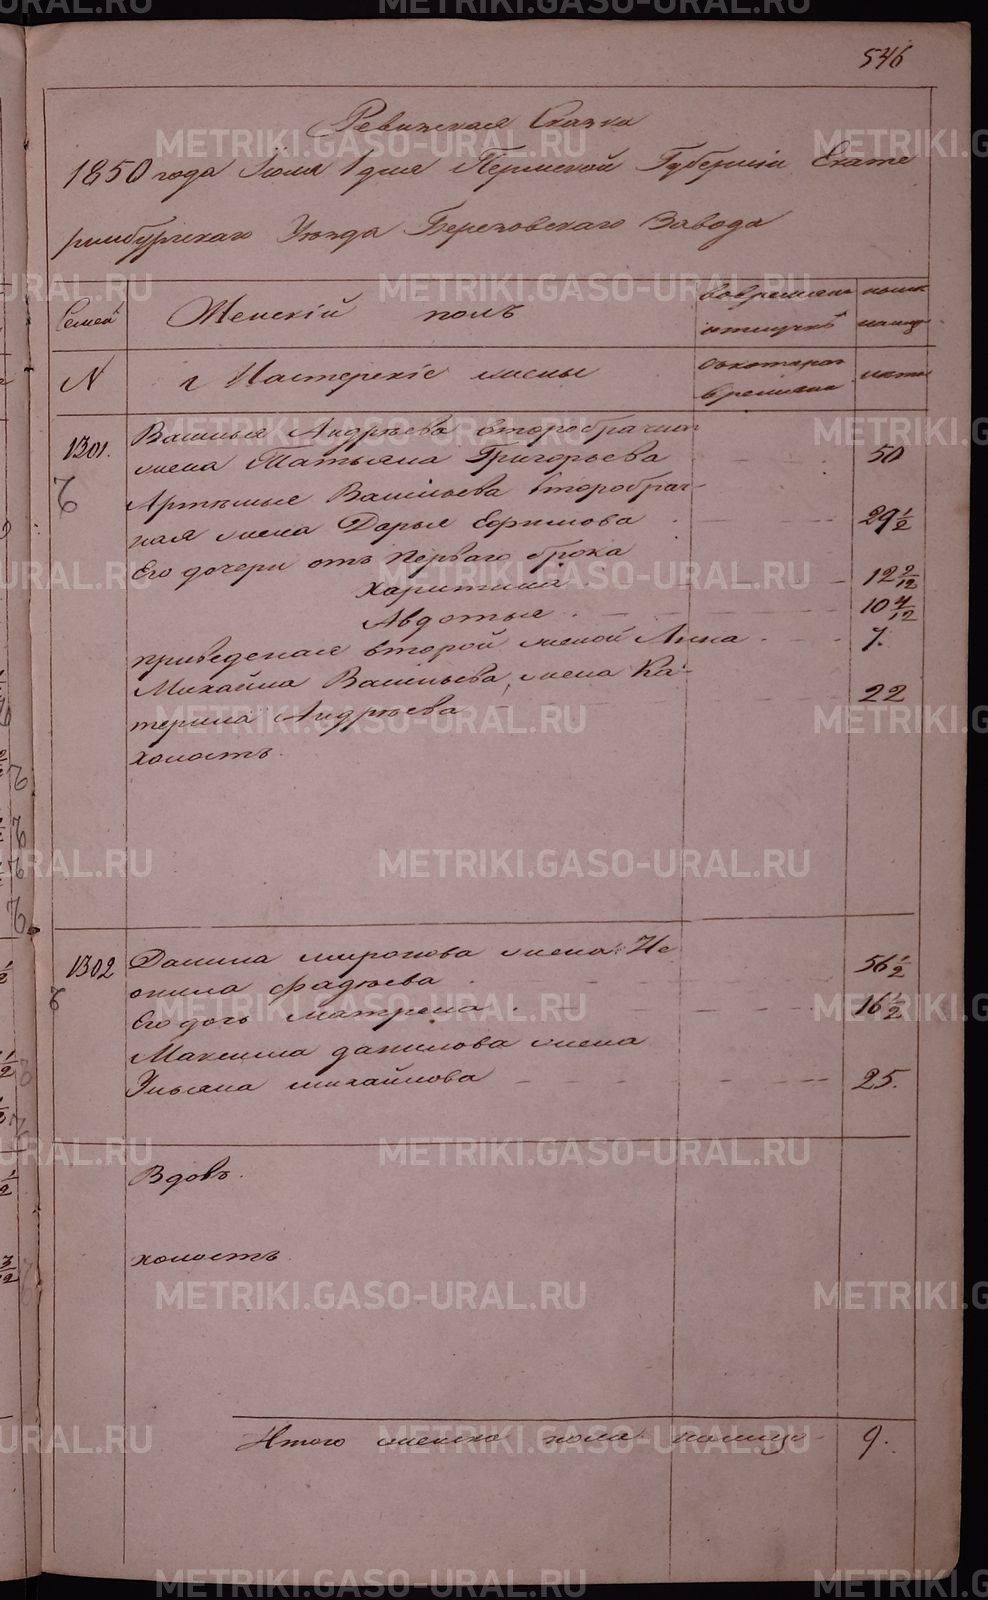 546
Ревижская Сказка
1850 года Іюля 1 дня Пермской Губерніи Екате
ринбургскаго Уѣзда Березовскаго Завода
Семей
Женскій полъ
вовременно
отлучкѣ
ныне
налицо
N
и Мастерскіе жены
съкотораго
времяни
лета
1301.
Василья Андрѣева второбрачная
жена Татьяна Григорьева
50
Артемья Васильева второбрач-
ная жена Дарья Ефимова
29 1/2
Его дочери отъ перваго брака
Харитина
12 9/12
Авдотья
10 4/12
приведеная второй женой Анна
7.
Михайла Васильева, жена Ка-
терина Андрѣева
22
холостъ.
1302
Данила миронова жена
фадѣева
56 1/2
Его дочь матрена
16 1/2
Максима данилова жена
Ульяна михайлова
25.
Вдовъ.
холостъ
Итого женска пола налицо
9.
METRIKI.GASO-URAL.RU